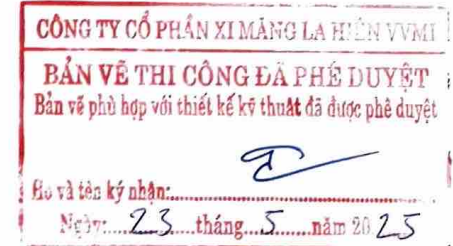 CÔNG TY CỔ PHẦN XI MĂNG LA HIÊN VVMI
BẢN VẼ THI CÔNG ĐÃ PHÊ DUYỆT
Bản vẽ phù hợp với thiết kế kỹ thuật đã được phê duyệt
Họ và tên ký nhận:
Ngày:....23....tháng...5.....năm 2025